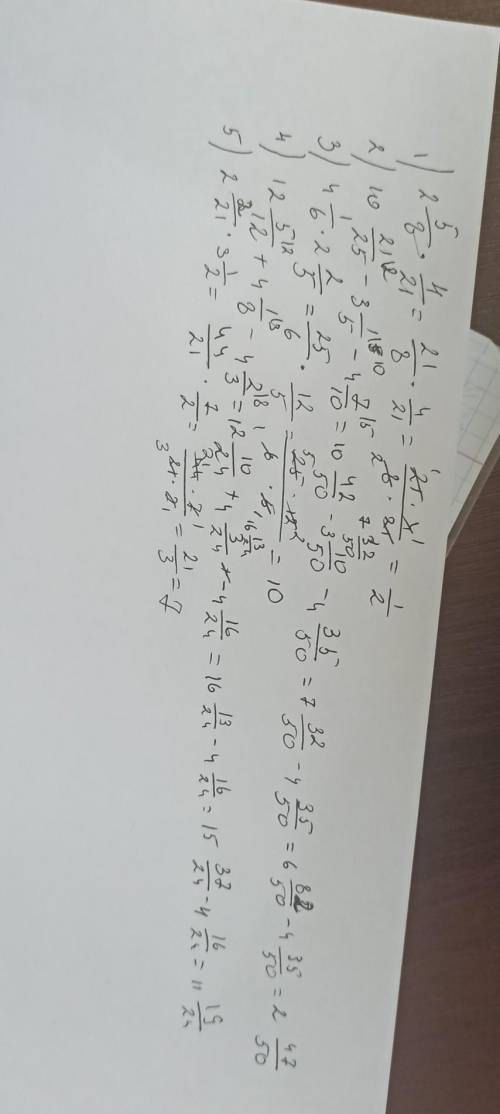 1) 2 5/8 · 4/21 = 21/8 · 4/21 = 21 · 4 / 8 · 21 = 1/2
2) 10 21/25 - 3 1/5 - 4 7/10 = 10 42/50 - 3 10/50 - 4 35/50 = 7 32/50 - 4 35/50 = 6 82/50 - 4 35/50 = 2 47/50
3) 4 1/6 · 2 2/5 = 25/6 · 12/5 = 25 · 12 / 6 · 5 = 10
4) 12 5/12 + 4 1/8 - 4 2/3 = 12 10/24 + 4 3/24 - 4 16/24 = 16 13/24 - 4 16/24 = 15 37/24 - 4 16/24 = 11 19/24
5) 2 2/21 · 3 1/2 = 44/21 · 7/2 = 21/3 = 7